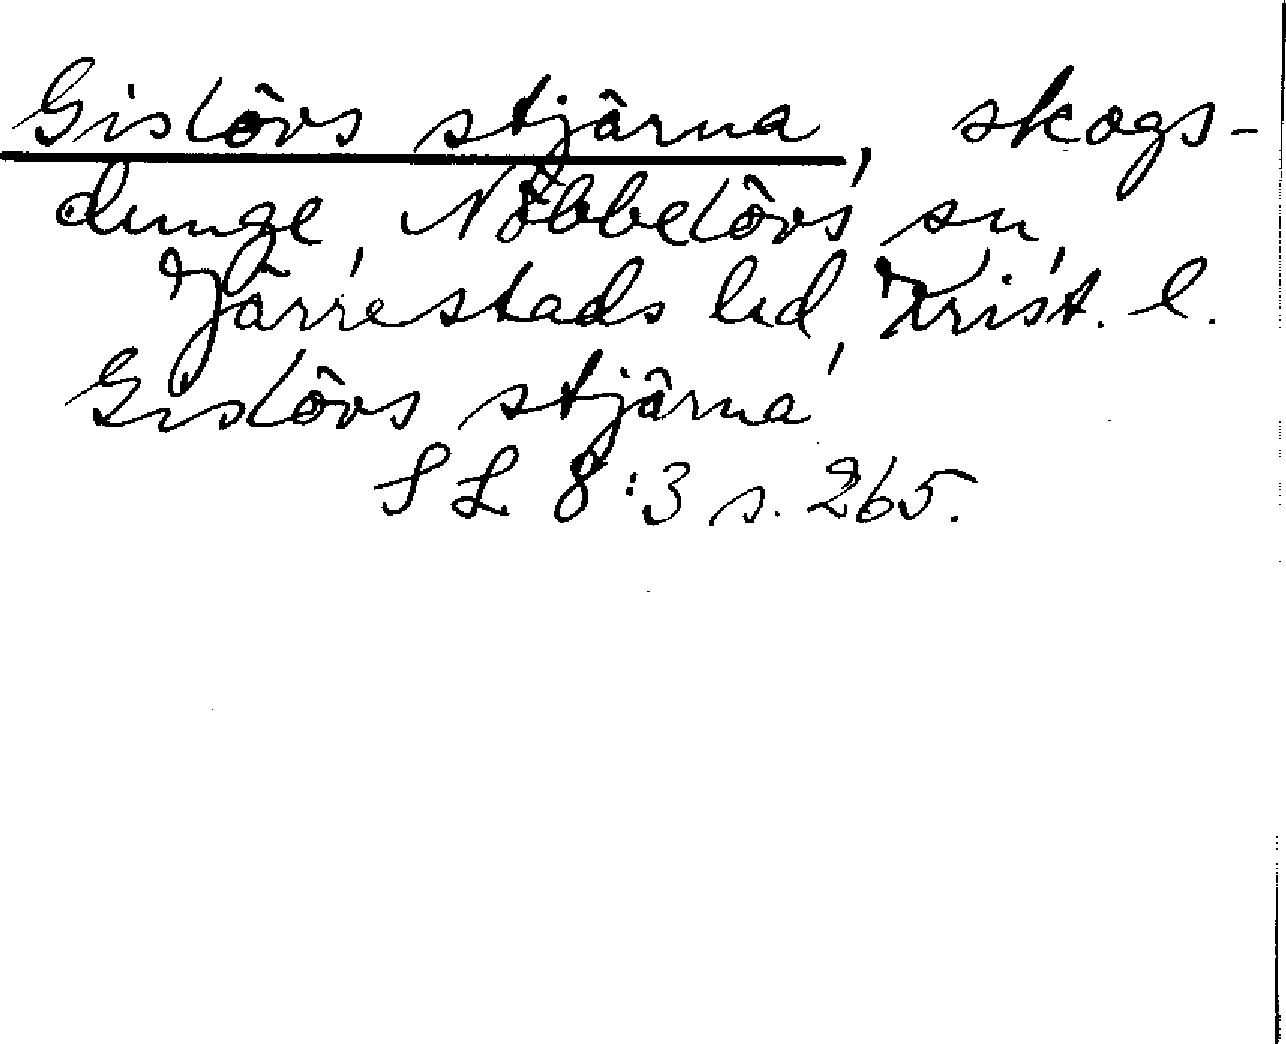 Gislövs stjärna, skogs-
dunge, Nöbbelövs sn,
Järrestads hd, Krist. l.
Gislövs stjärna
SL 8:3 s. 265.